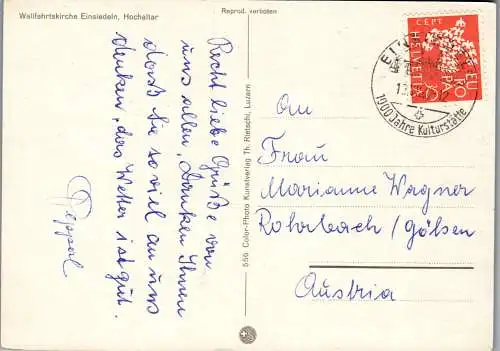 Wallfahrtskirche Einsiedeln, Hochaltar
Reprod. verboten
Recht liebe Grüße von
uns allen, Danken Ihnen
dass Sie so viel an uns
denken, das Wetter ist gut.
Pepperl
556 Color-Photo Kunstverlag Th. Rietschi, Luzern
CEPT
HELVETIA
EUROPA
1000 Jahre Kulturstätte
An
Frau
Marianne Wagner
Rohrbach/Gölsen
Austria